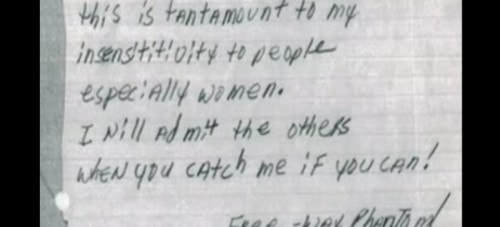 this is tantamount to my
insensititivity to people
especially women.
I will admit the others
when you catch me if you can!
Free-way Phantom